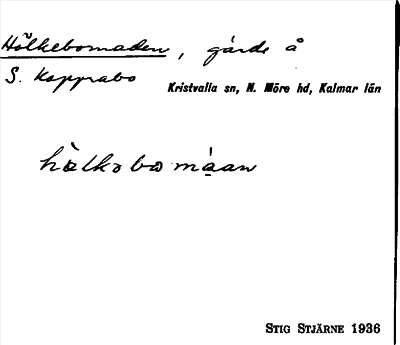 Hölkebomaden, gärde å
S. Kopprabo
Kristvalla sn, N. Möre hd, Kalmar län
STIG STJÄRNE 1936